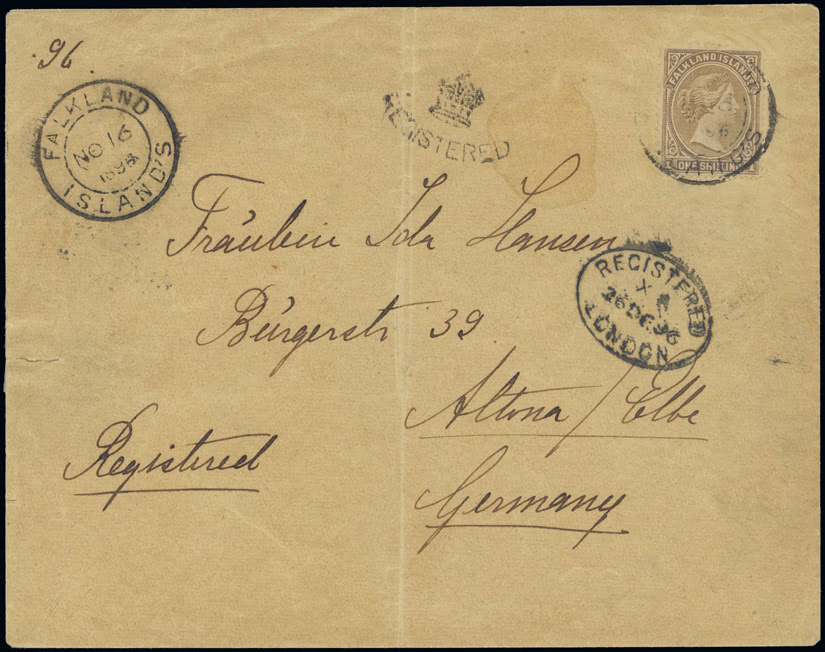 96.
FALKLAND
NO 16
1896
ISLAND'S
REGISTERED
FALKLAND ISLANDS
ONE SHILLING
96
Fräulein Ida Hansen
Bürgerstr 39
Altona / Elbe
Germany
Registered
REGISTERED
X
26 DE 96
LONDON